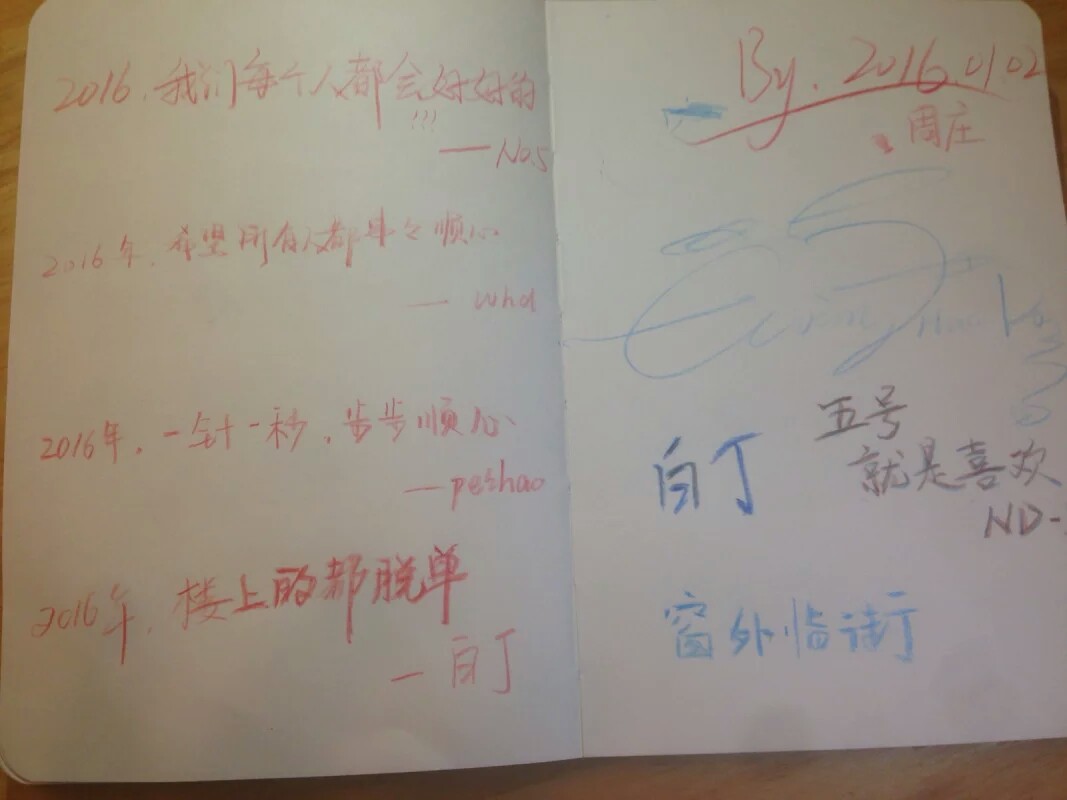 2016.我们每个人都会好好的
!!!
— No.5
2016年.希望所有人都事事顺心
— whd
2016年.一针一秒.步步顺心
— peishao
2016年.楼上的都脱单
— 白丁
By. 2016.01.02
周庄
白丁
五号
就是喜欢
ND-
窗外临街